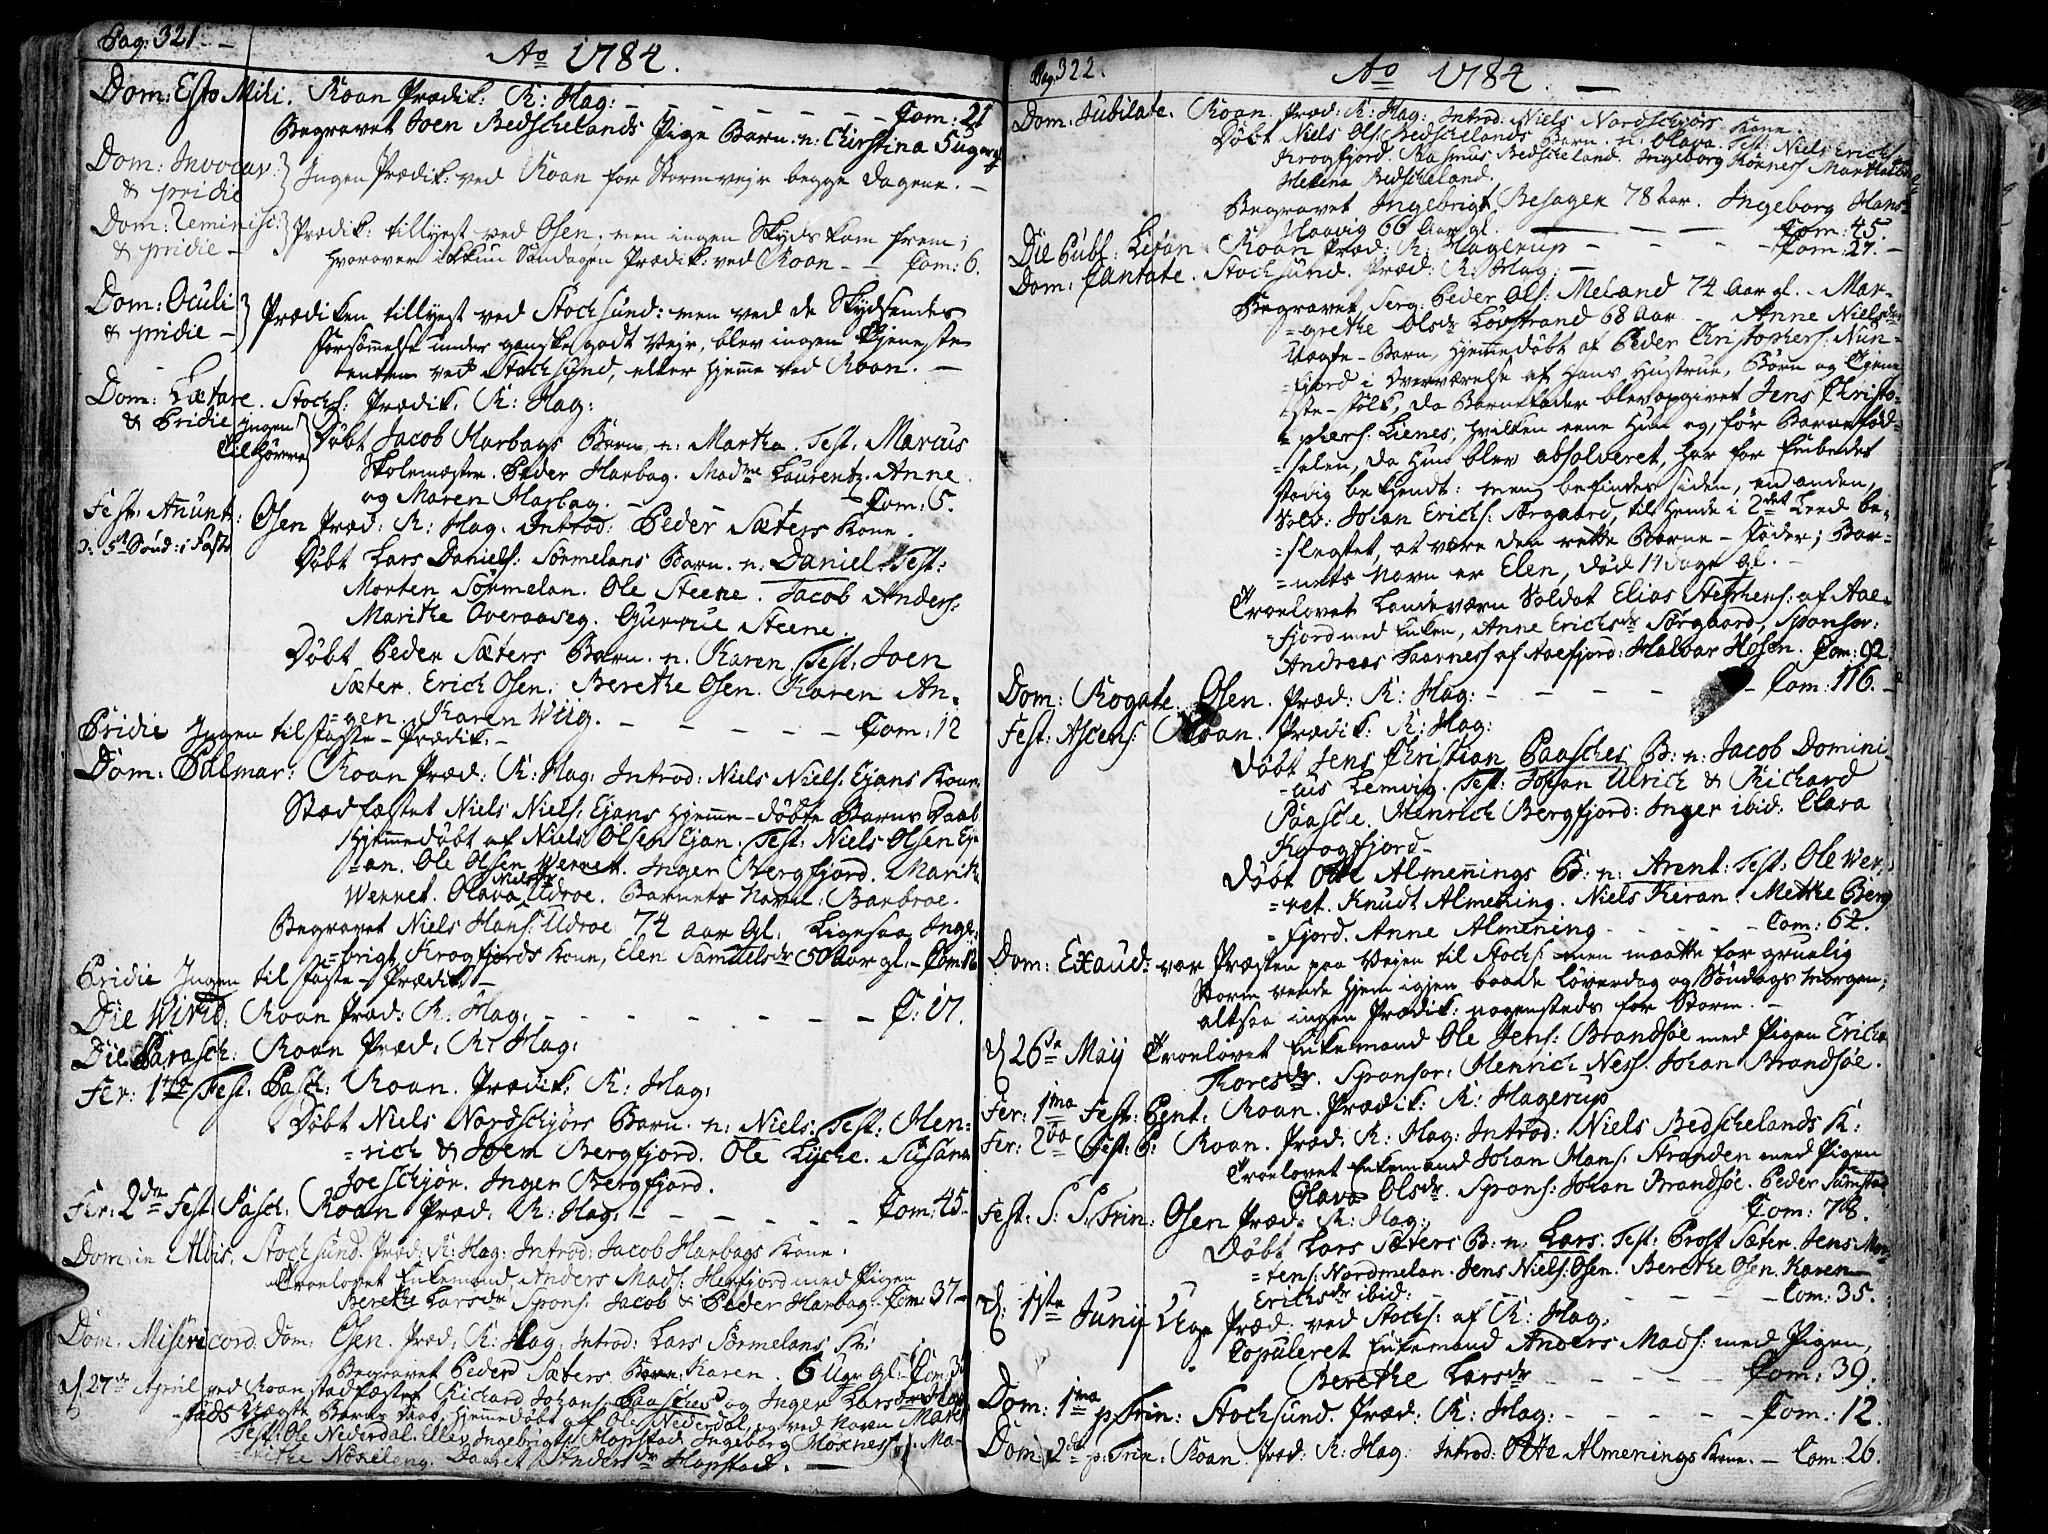 Pag: 321
Ao 1784.
Dom: Esto Mihi. Roan Prædik: R: Hag: Com: 21
Begravet Joen Bedschelands Pige Barn. n: Christina 5 Uger gl
Dom: Invocav: & pridie Ingen Prædik: ved Roan for Stormvejr begge Dagene.
Dom: Reminisc: & pridie Prædik: tillyst ved Osen, men ingen Skyds kom frem;
hvorover ikkun Søndagen Prædik: ved Roan Com: 6.
Dom: Oculi & pridie Prædiken tillyst ved Stocksund: men ved de Skydsendes
Forsømmelse under ganske godt Vejr, blev ingen Tjeneste
enten ved Stocksund, eller hjemme ved Roan.
Dom: Lætare. Stocks: Prædik: R: Hag:
& Pridie ingen Tilhørere
Døbt Jacob Harbags Barn. n: Martha. Test: Marcus
Skolemester. Peder Harbag. Madme Laurentz. Anne
og Maren Harbag. Com: 5.
Fest: Anunt: Osen Præd: R: Hag. Introd: Peder Sæters Kone.
ɔ: 5te Sønd: i Faste
Døbt Lars Daniels: Sørmelans Barn. n: Daniel. Test:
Morten Sørmelan. Ole Steene. Jacob Anders:
Marithe Overaaseg. Gurrue Steene.
Døbt Peder Sæters Barn. n: Karen. Test: Joen
Sæter. Erich Osen. Berethe Osen. Karen An-
=gen. Karen Wiig. Com: 12
Pridie Ingen til Faste-Prædik:
Dom: Palmar: Roan Præd: R: Hag: Introd: Niels Niels: Ejans Kone
Stadfæstet Niels Niels: Ejans Hjemme-døbte Barns Daab
Hjemmedøbt af Niels Olsen Ejan. Test: Niels Olsen Ej-
=an. Ole Olsen Wennet. Inger Bergfjord. Marith
Wennet. Olava Nielsdr Udroe. Barnets Navn: Barbroe.
Begravet Niels Hans: Udroe 74 aar Gl. Ligesaa Inge-
=brigt Krogfjords Kone, Elen Samuelsdr 50 Aar gl. Com: 16
Pridie Ingen til Faste-Prædik:
Die Virid: Roan Præd: R: Hag: C: 17.
Die Parasch: Roan Præd: R: Hag:
Fer: 1ma Fest: Pasch: Roan. Prædik: R: Hag:
Døbt Niels Nordschjørs Barn. n: Niels: Test: Hen-
=rich & Joen Bergfjord. Ole Lyche. Susana
Joeschjør. Inger Bergfjord.
Fer: 2da Fest: Pasch: Roan Præd: R: Hag: Com: 45
Dom: in Albis. Stocksund. Præd: R: Hag: Introd: Jacob Harbags Kone.
Troelovet Enkemand Anders Mads: Hegfjord med Pigen
Berethe Larsdr Spons: Jacob & Peder Harbag: Com: 37
Dom. Misericord: Dom: Osen. Præd: R: Hag: Introd: Lars Sørmelans K:
Begravet Peder Sæters Barn: Karen. 6 Uger gl:
27de April ved Roan stadfæstet Richard Johans: Paasches og Inger Larsdr Hop-
stads Uægte Barns Daab, hjemmedøbt af Ole Nederdal, og ved Navn Maren
Test: Ole Nederdal. Ellev Ingebrigts: Hopstad. Ingeborg Hoxness. Ma-
rithe. Daaret Andersdr Hopstad.
Pag: 322.
Ao 1784.
Dom. Jubilate. Roan. Præd: R: Hag: Introd: Niels Nordschjørs Kone.
Døbt Niels Ols: Bedschelands Barn. n: Olava. Test: Niels Erichs:
Krogfjord. Rasmus Bedscheland. Ingeborg Hoxness Martha
Helena Bedscheland.
Begravet Ingebrigt Besagen 78 Aar. Ingeborg Hans
Haavig 66 Aar gl. Com: 45.
Die Publ: Roan Præd: R: Hagerup Com: 27.
Dom: Cantate. Stocksund. Præd: R: Hag:
Begravet Serg: Peder Ols: Meland 74 Aar gl. Mar-
=grethe Olsdr Løvstrand 68 Aar. Anne Nielsdr
Uægte-Barn, hjemmedøbt af Peder Christophers: Nun-
=fjord i Overværelse af hans Hustrue, Børn og Tjene-
ste-Folk, da Barnefader blev opgivet Jens Christo-
=phers: Lienes, hvilken eene hun og, før Barnefød-
=selen, da hun blev absolveret, har for Embedet
stadig bekjendt: men befindes siden, en anden,
Sold: Johan Erichs: Sørgaard, til hende i 2det Leed be-
=slegtet, at være den rette Barne-Fader; Bar-
=nets Navn er Elen, død 14 Dage Gl.
Troelovet Landeværn Soldat Elias Stephens: af Aae-
=fjord med Enken, Anne Erichsdr Sørgaard, Sponsor:
Andreas Taarness af Aaefjord: Halvar Hosen. Com: 92.
Dom: Rogate. Osen. Præd: R: Hag: Com: 116.
Fest: Ascens: Roan. Prædik: R: Hag:
Døbt Jens Christian Paasches B: n: Jacob Domini-
=cus Lemvig. Test: Johan Ulrich & Richard
Paasche. Henrich Bergfjord: Inger ibid: Clara
Krogfjord
Døbt Otte Almenings B: n: Arent: Test: Ole Wer-
=ret. Knudt Almening. Niels Kiran. Methe Berg
=fjord. Anne Almening Com: 62.
Dom: Exaud: var Præsten paa Vejen til Stocks: men maatte for gruelig
Storm vende hjem igjen baade Løverdag og Søndags Morgen;
altsaa ingen Prædik: nogensteds for Storm.
26de Maij Troelovet Enkemand Ole Jens: Brandsøe med Pigen Ericha
Toresdr. Sponsor: Henrich Ness. Johan Brandsøe.
Fer: 1ma Fest: Pent: Roan. Prædik: R: Hagerup
Fer: 2da Fest: P: Roan. Præd: R: Hag: Introd: Niels Bedschelands K:
Troelovet Enkemand Johan Hans: Stranden med Pigen
Olava Olsdr. Spons: Johan Brandsøe. Peder Sumstad
Com: 78.
Fest: S: S: Trin: Osen Præd: R: Hag:
Døbt Lars Sæters B: n: Lars. Test: Prost Sæter. Jens Mor-
=tens: Nordmelan. Jens Niels: Osen. Berethe Osen. Karen
Erichsdr ibid: Com: 35.
17de Junij Præd. ved Stocks: af R: Hag:
Copuleret Enkemand Anders Mads: med Pigen,
Berethe Larsdr Com: 39.
Dom: 1ma p. Trin: Stocksund. Præd: R: Hag: Com: 12.
Dom: 2da p. Trin: Roan. Præd: R: Hag: Introd: Otte Almenings Kone. Com: 26.